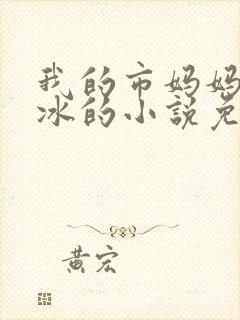 我的市妈妈
冰的小说免
黄宏